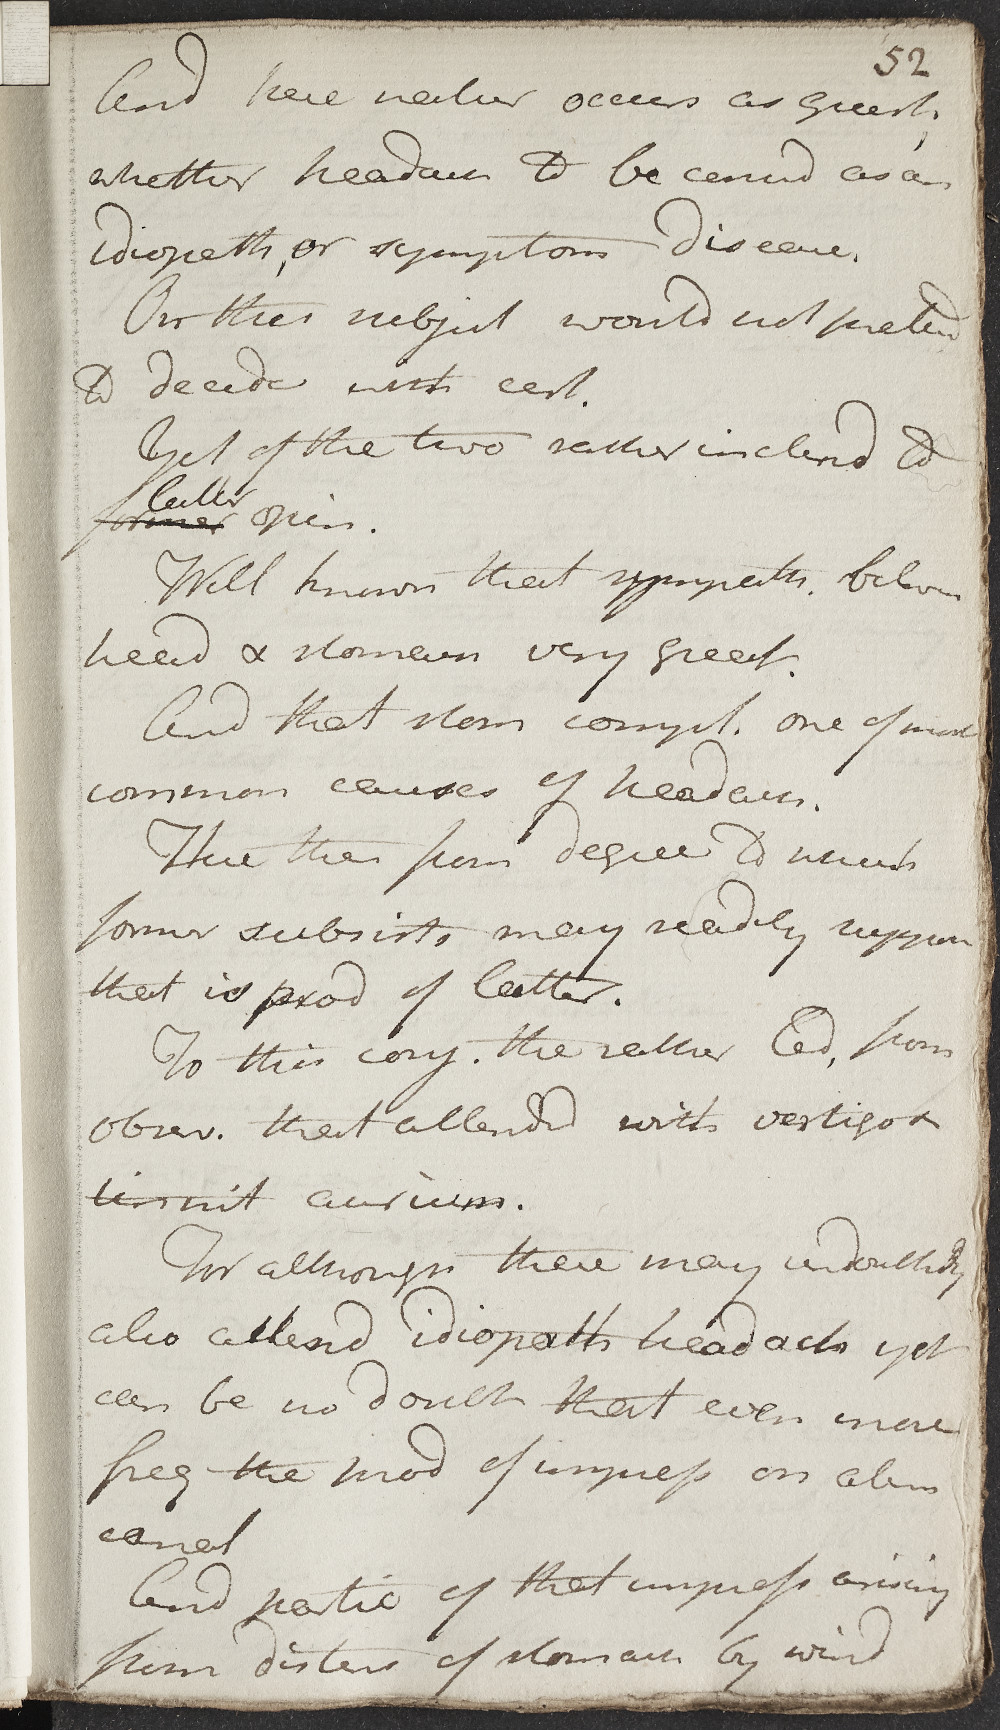 52
And here neither occurs as quest,
whether headach to be consid as an
idiopath, or symptom disease.
On this subject would not pretend
to decide with cert.
Yet of the two rather inclend to
latter
former opin.
Well known that sympath. betwn
head & stomach very great.
And that stom compl. one of most
common causes of headach.
Thre then from degree to which
former subsists may readily suppose
that is prod of latter.
To this conj. the rather led, from
obser. that attended with vertigo &
tinnit aurium.
For although these may undoubtedly
also attend idiopath headach yet
can be no doubt that even more
freq the prod of impress on alim
canal
And partic of that impress arising
from disten of stomach by wind